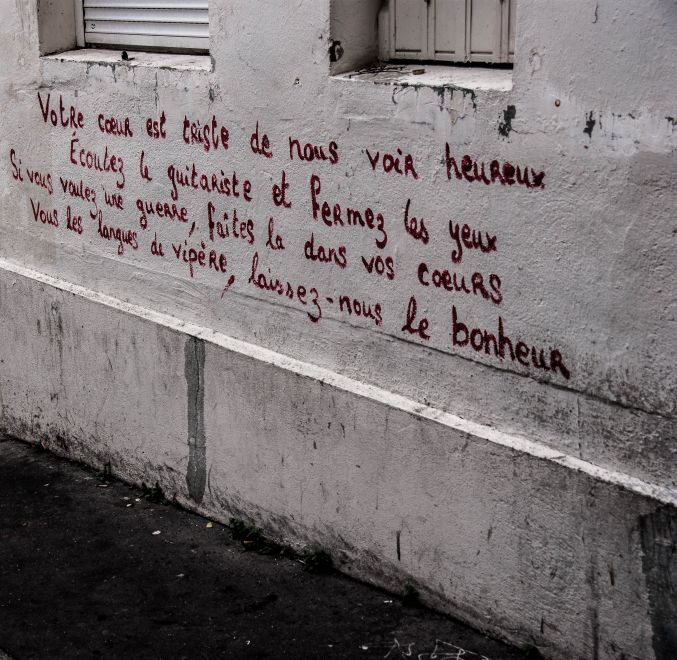 Votre cœur est triste de nous voir heureux
Écoutez le guitariste et fermez les yeux
Si vous voulez une guerre, faites la dans vos cœurs
Vous les langues de vipère, laissez-nous le bonheur